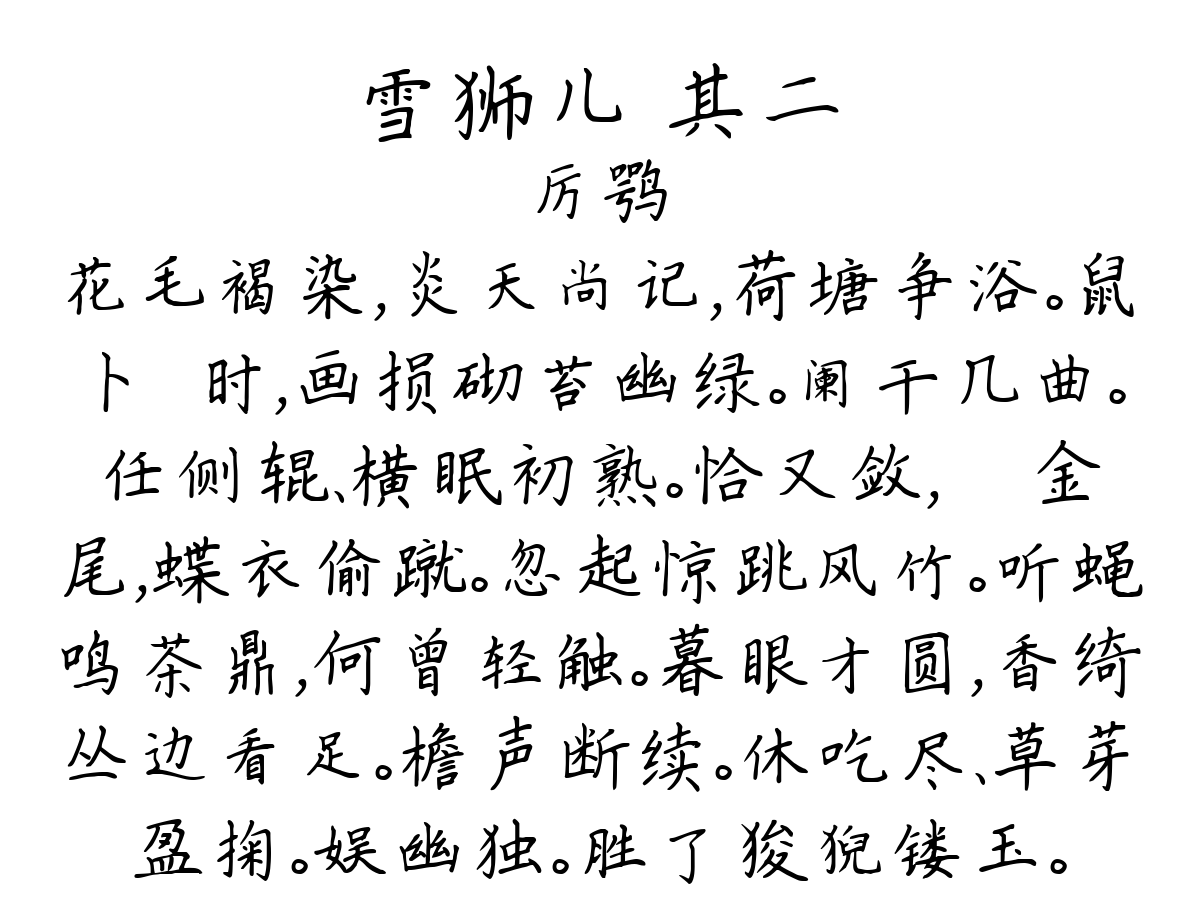 雪狮儿 其二
厉鹗
花毛褐染,炎天尚记,荷塘争浴。鼠
卜 时,画损砌苔幽绿。阑干几曲。
任侧辊、横眠初熟。恰又敛, 金
尾,蝶衣偷蹴。忽起惊跳风竹。听蝇
鸣茶鼎,何曾轻触。暮眼才圆,香绮
丛边看足。檐声断续。休吃尽、草芽
盈掬。娱幽独。胜了狻猊镂玉。